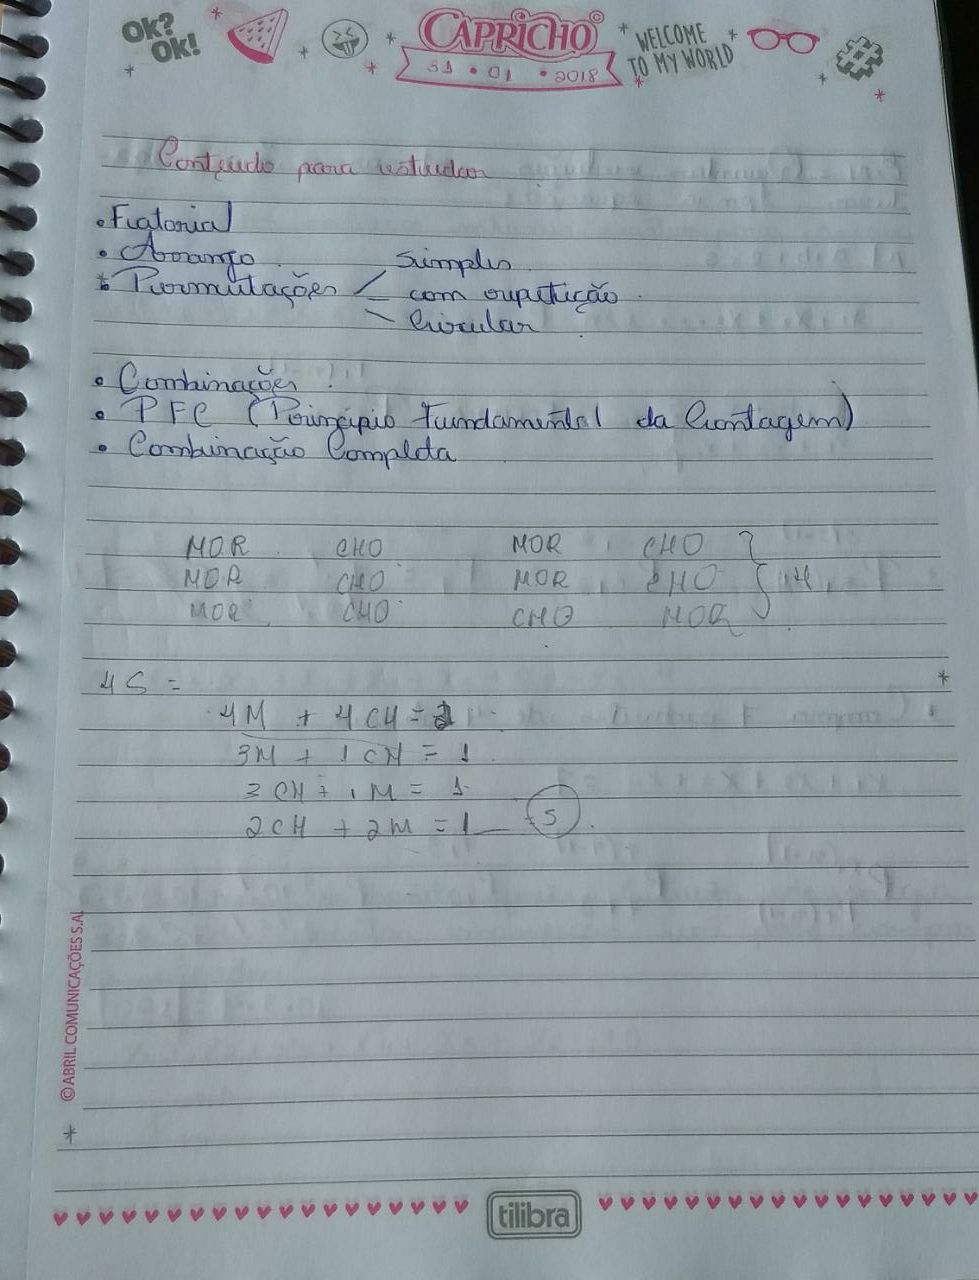 OK?
OK!
CAPRICHO©
31 • 01 • 2018
WELCOME
TO MY WORLD
Conteúdo para estudar
• Fatorial
• Arranjo
• Permutações < simples
com repetição
circular
• Combinações
• PFC (Princípio Fundamental da Contagem)
• Combinação Completa
MOR CHO MOR CHO
MOR CHO MOR CHO
MOR CHO CHO MOR
4 S =
4M + 4CH =
3M + 1CH = 1
3CH + 1M = 1
2CH + 2M = 1 5
© ABRIL COMUNICAÇÕES S.A.
tilibra